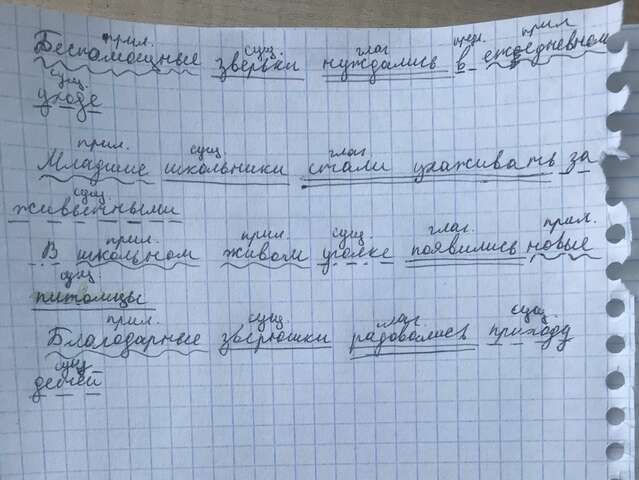 прил. сущ. глаг предл прил
Беспомощные зверьки нуждались в ежедневном
сущ.
уходе
прил. сущ. глаг
Младшие школьники стали ухаживать за
сущ
животными
прил. прил. сущ. глаг. прил.
В школьном живом уголке появились новые
сущ.
питомцы
прил. сущ. глаг сущ.
Благодарные зверюшки радовались приходу
сущ
детей